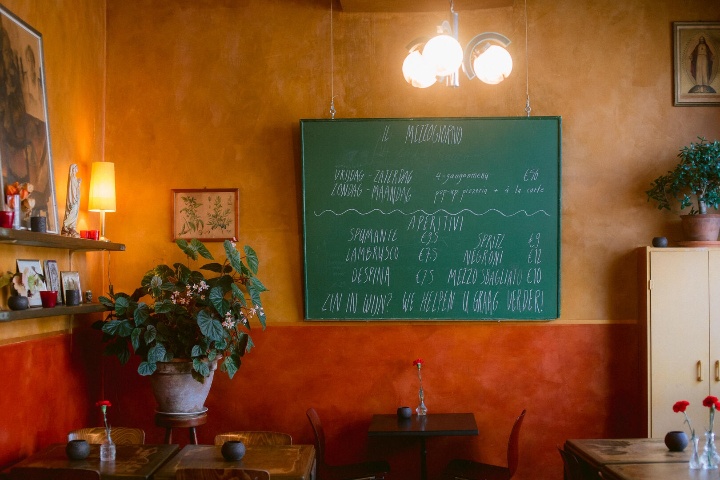 IL MEZZOGIORNO
VRIJDAG - ZATERDAG 4-gangenmenu €46
ZONDAG - MAANDAG pop-up pizzeria + à la carte
APERITIVI
SPUMANTE €9,5 SPRITZ €9
LAMBRUSCO €7,5 NEGRONI €12
DESPINA €7,5 MEZZO SBAGLIATO €10
ZIN IN WIJN? WE HELPEN U GRAAG VERDER!